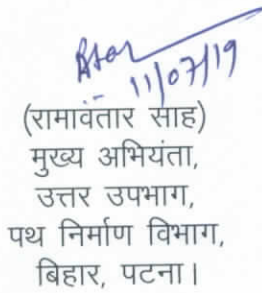 11/07/19
(रामावतार साह)
मुख्य अभियंता,
उत्तर उपभाग,
पथ निर्माण विभाग,
बिहार, पटना।